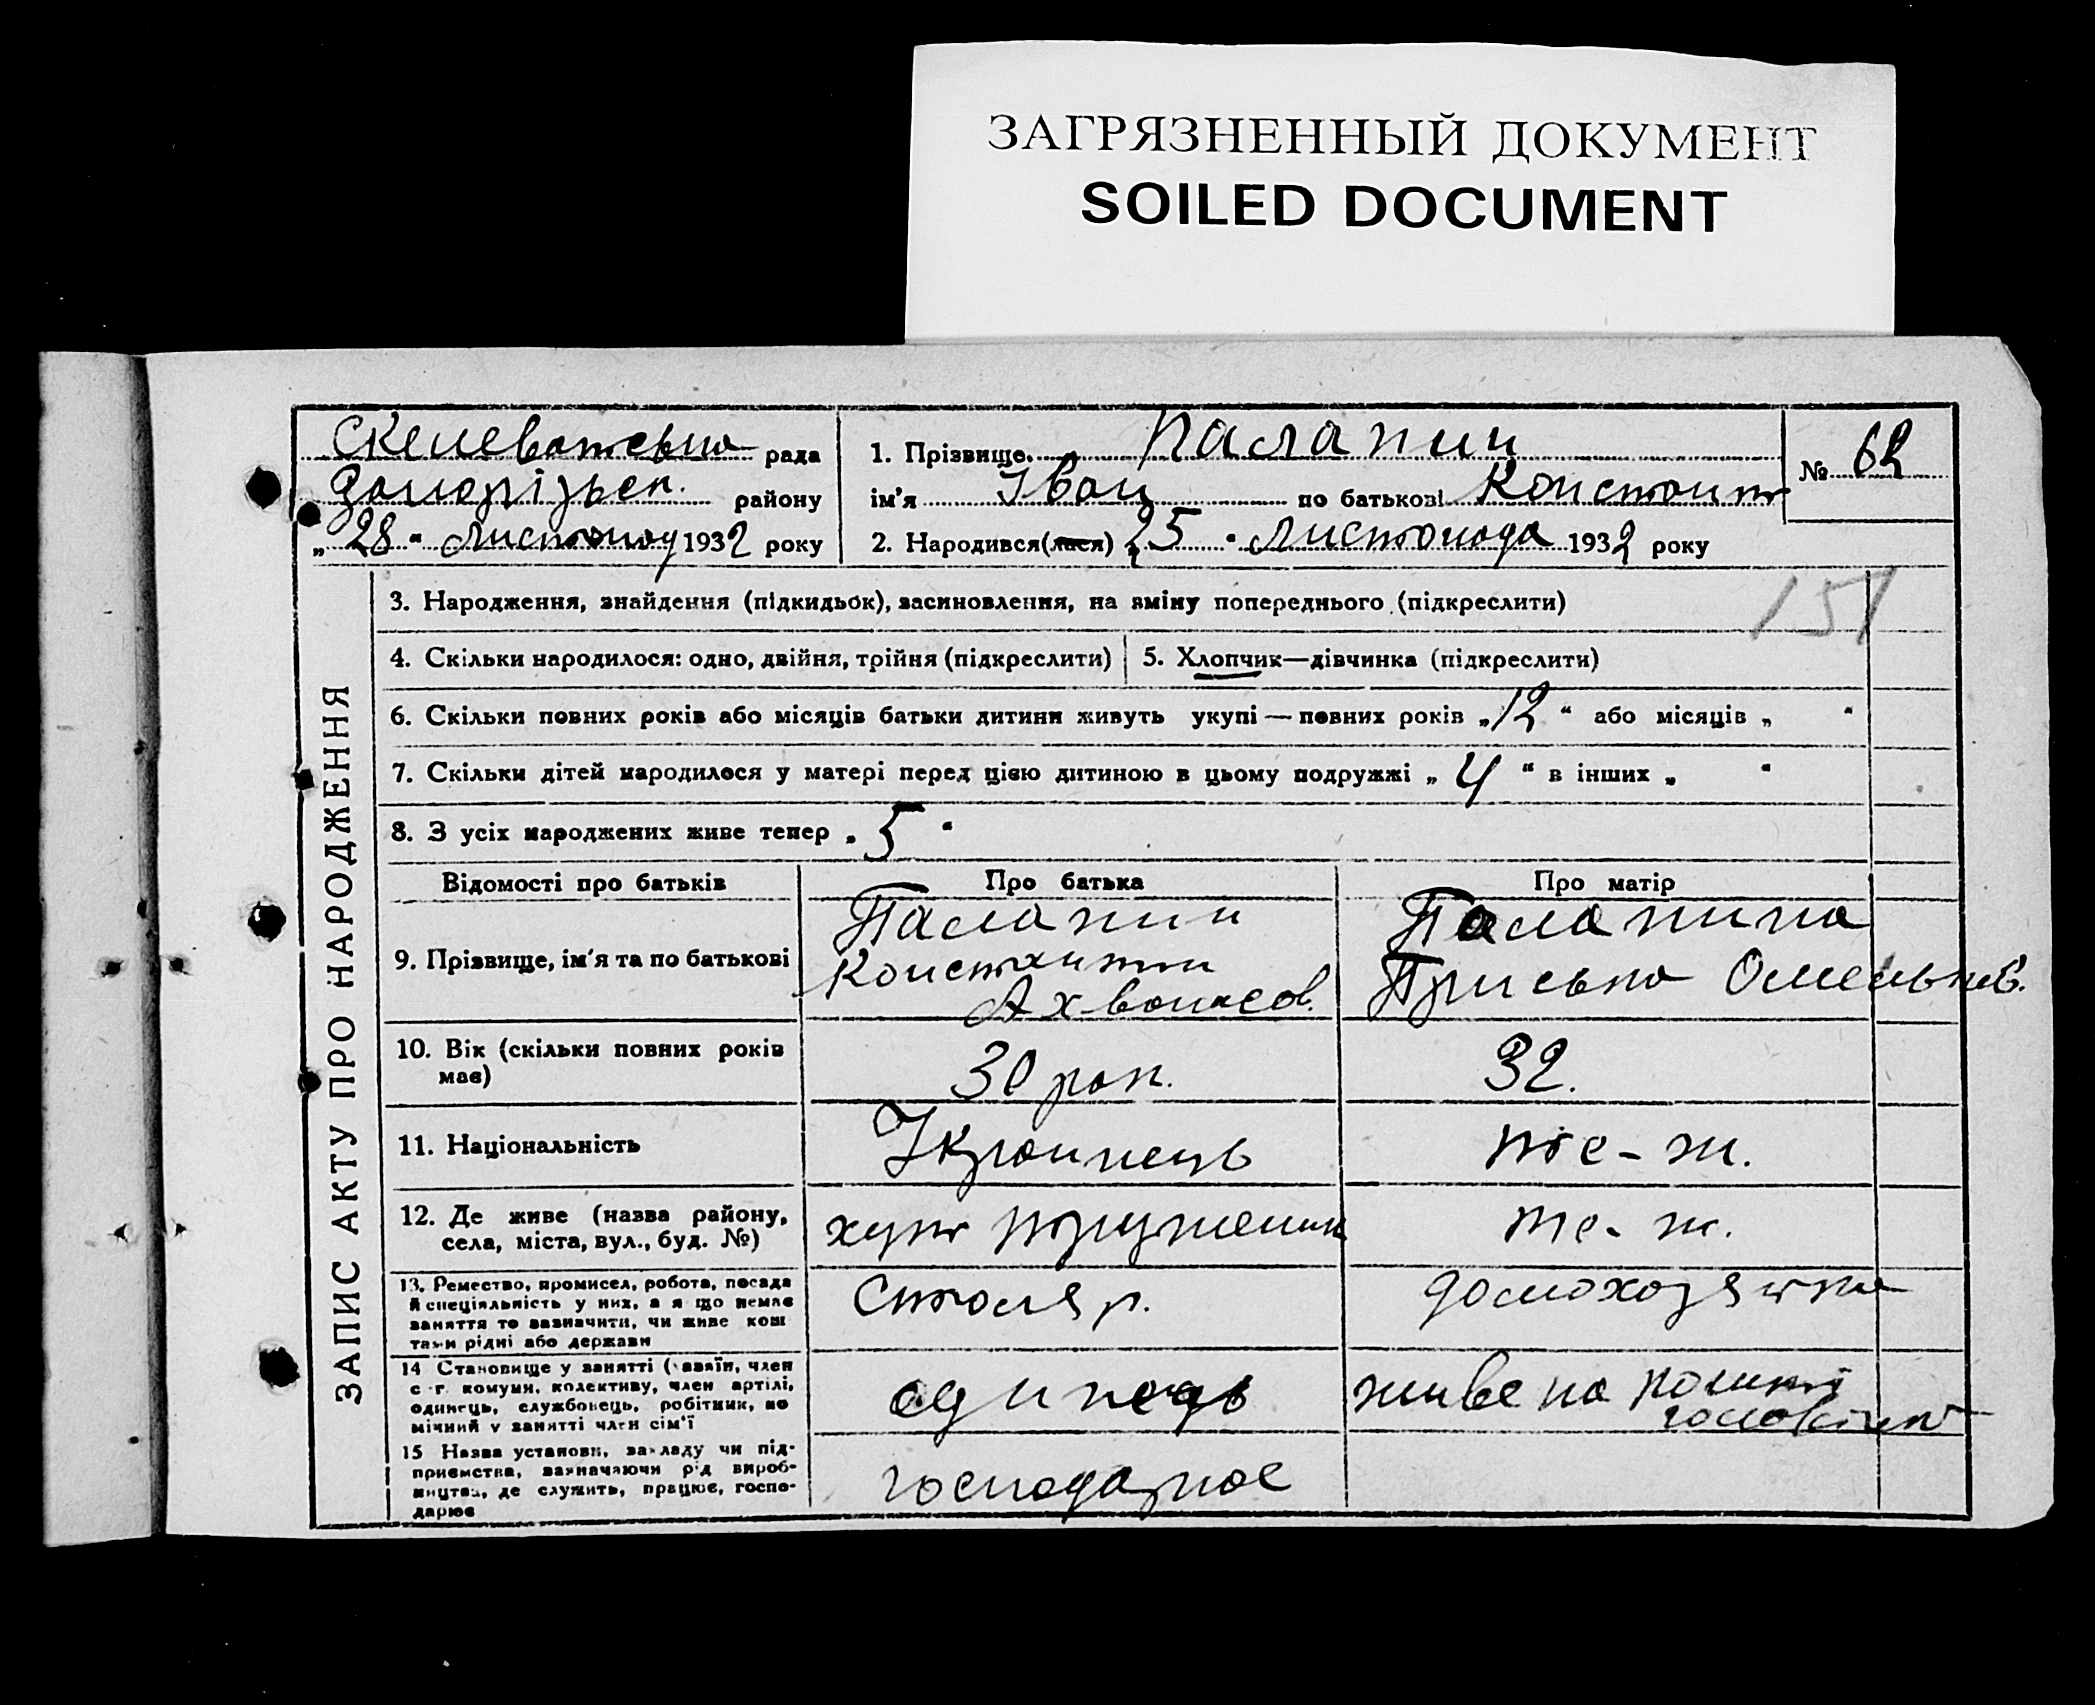 ЗАГРЯЗНЕННЫЙ ДОКУМЕНТ
SOILED DOCUMENT
рада
району
„ 28 " Листопад 1932 року
1. Прізвище Паланин
ім'я Іван по батькові Констант
2. Народився(лася) 25 " Листопада 1932 року
№ 62
151
ЗАПИС АКТУ ПРО НАРОДЖЕННЯ
3. Народження, знайдення (підкидьок), засиновлення, на зміну попереднього (підкреслити)
4. Скільки народилося: одно, двійня, трійня (підкреслити)
5. Хлопчик—дівчинка (підкреслити)
6. Скільки повних років або місяців батьки дитини живуть укупі — повних років „ 12 " або місяців „ "
7. Скільки дітей народилося у матері перед цією дитиною в цьому подружжі „ 4 " в інших „ "
8. З усіх народжених живе тепер „ 5 "
Відомості про батьків
Про батька
Про матір
9. Прізвище, ім'я та по батькові
Паланин
Константин
Ахванасов.
Паланина
Приська Омельков.
10. Вік (скільки повних років
має)
30 рок.
32.
11. Національність
Українець
те-ж.
12. Де живе (назва району,
села, міста, вул., буд. №)
хут
те-ж.
13. Ремество, промисел, робота, посада
й спеціяльність у них, а якщо немає
заняття то зазначити, чи живе кош
тами рідні або держави
Столяр.
домохозяйка
14 Становище у занятті (хазяїн, член
с.-г. комуни, колективу, член артілі,
одинець, службовець, робітник, по
мічний у занятті член сім'ї
одинець
живе на кошти
чоловіка
15 Назва установи, закладу чи під-
приємства, зазначаючи рід вироб-
ництва, де служить, працює, госпо-
дарює
господарює